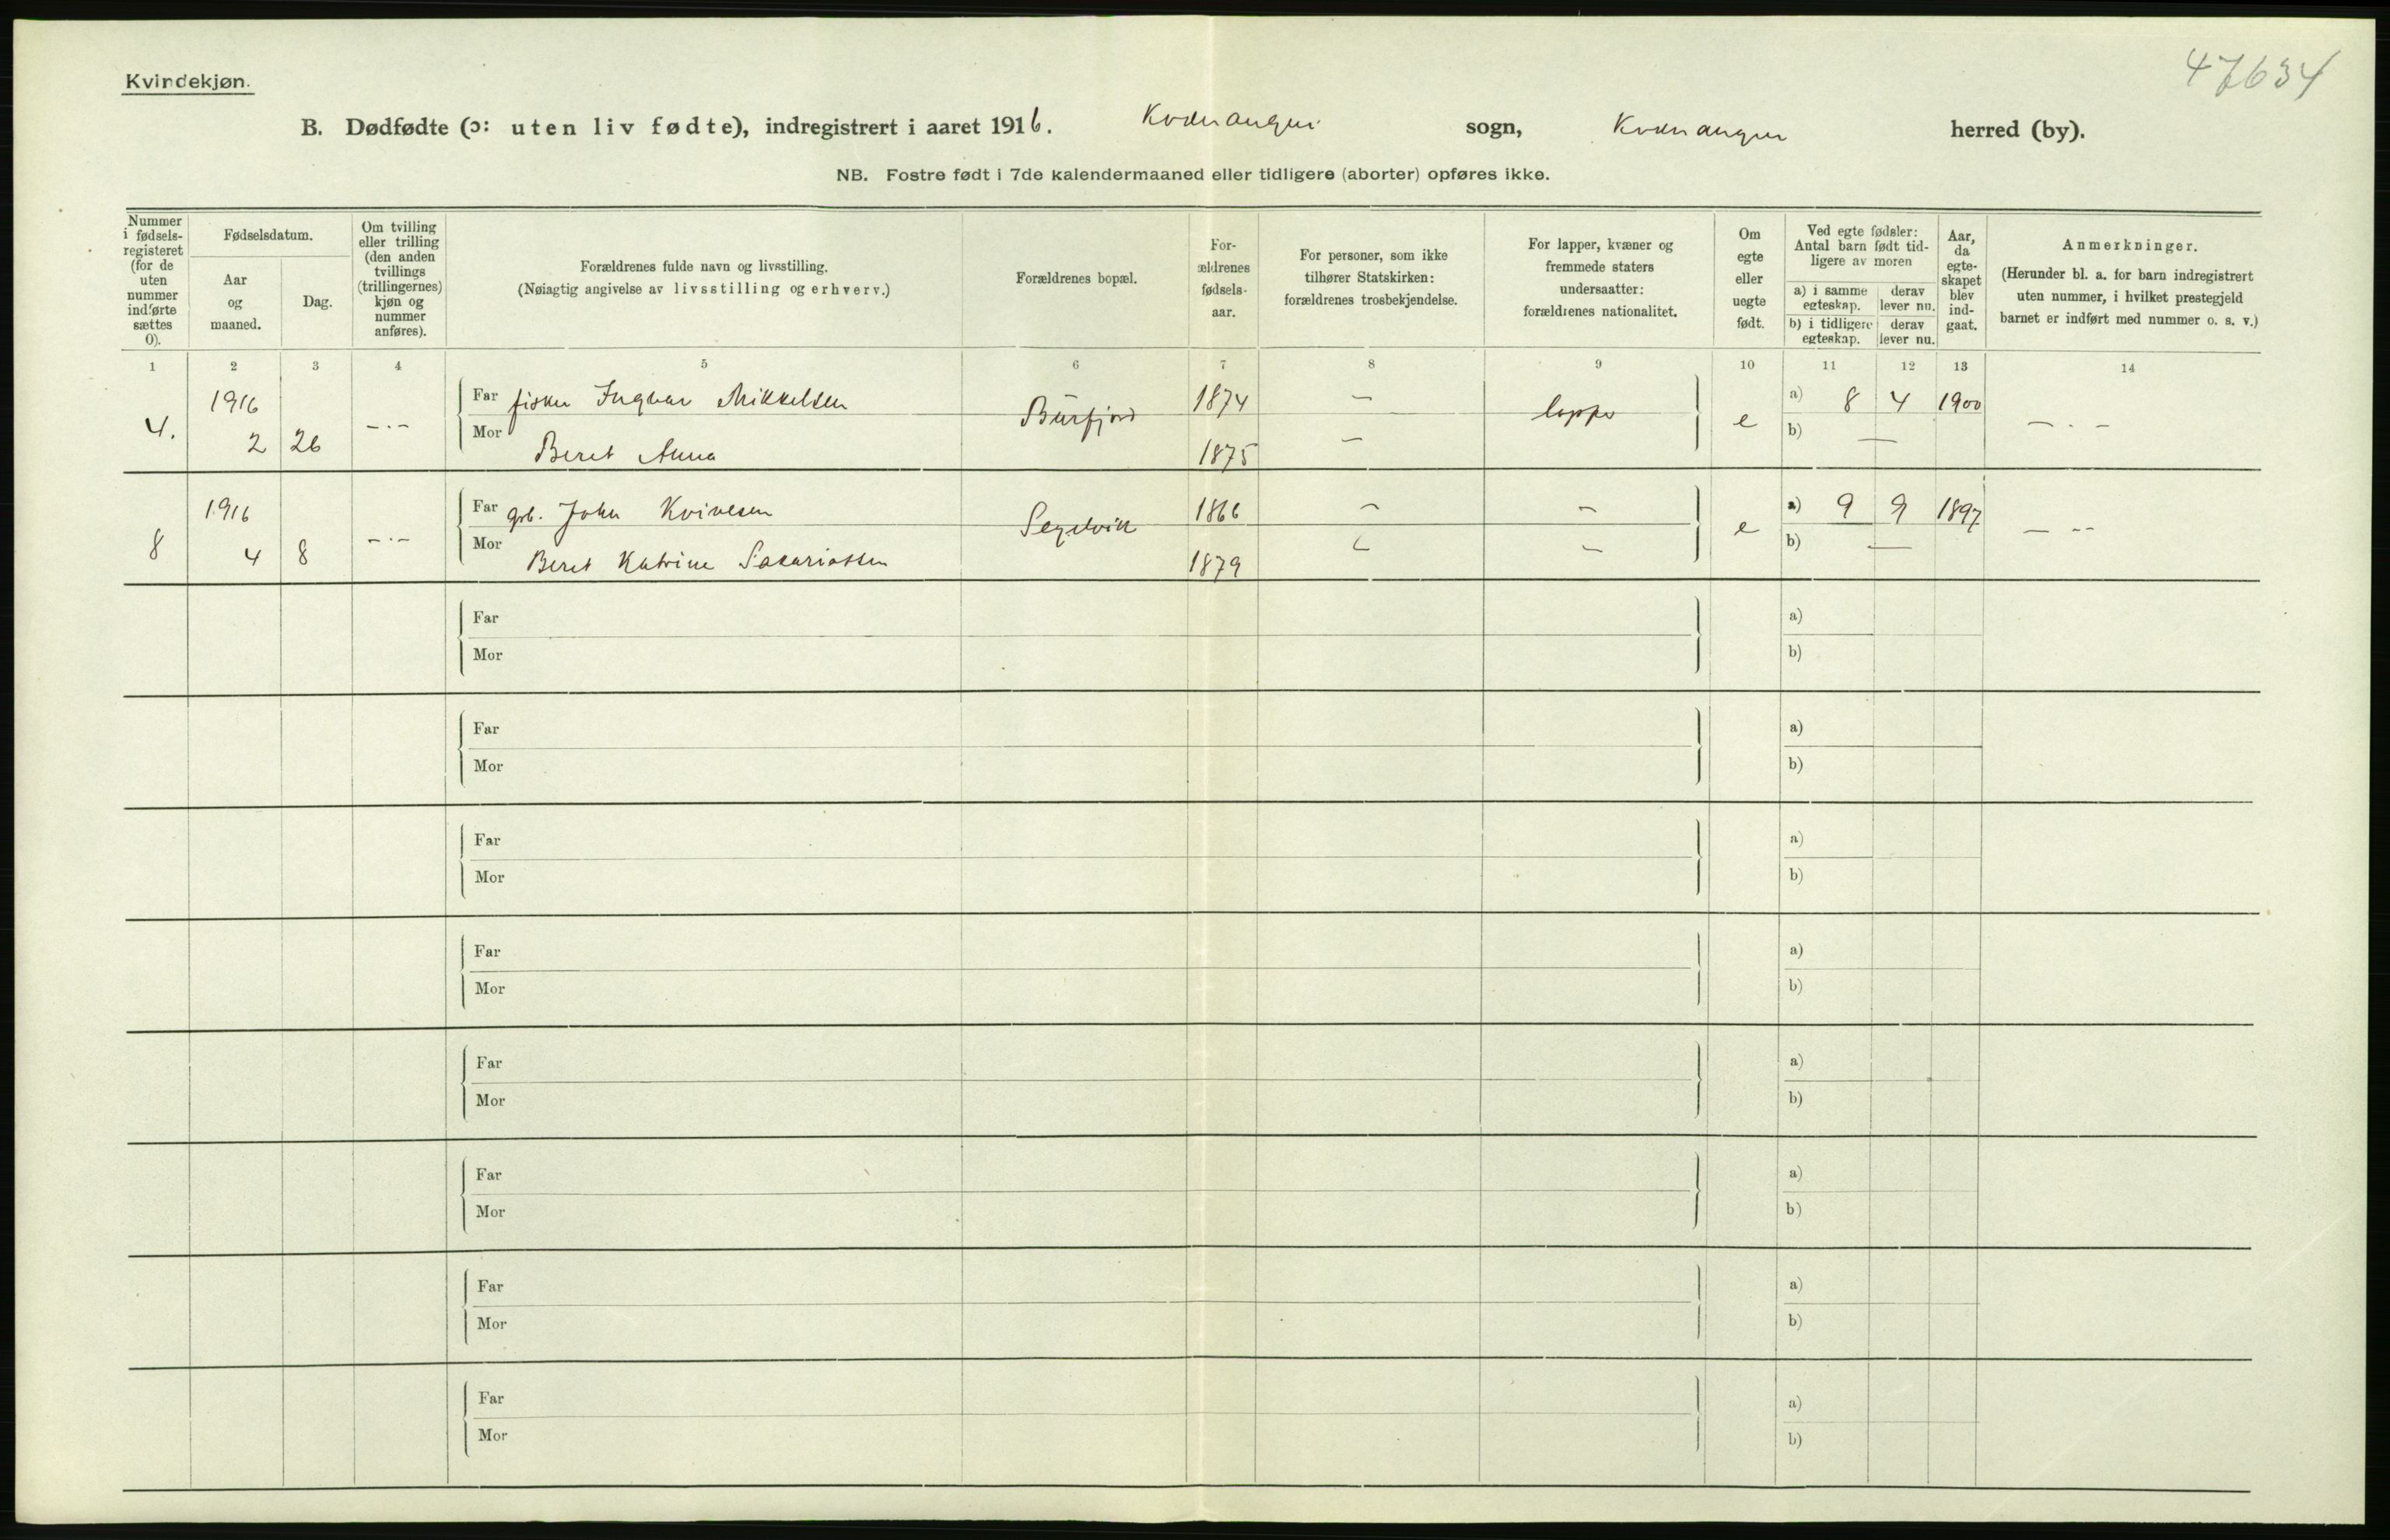 47634
Kvindekjøn.
B. Dødfødte (ɔ: uten liv fødte), indregistrert i aaret 1916. Kvænangen sogn, Kvænangen herred (by).
NB. Fostre født i 7de kalendermaaned eller tidligere (aborter) opføres ikke.
Nummer i fødsels-registeret (for de uten nummer indførte sættes 0).
Fødselsdatum.
Aar og maaned.
Dag.
Om tvilling eller trilling (den anden tvillings (trillingernes) kjøn og nummer anføres).
Forældrenes fulde navn og livsstilling.
(Nøiagtig angivelse av livsstilling og erhverv.)
Forældrenes bopæl.
For-ældrenes fødsels-aar.
For personer, som ikke tilhører Statskirken: forældrenes trosbekjendelse.
For lapper, kvæner og fremmede staters undersaatter: forældrenes nationalitet.
Om egte eller uegte født.
Ved egte fødsler: Antal barn født tid-ligere av moren
a) i samme egteskap.
derav lever nu.
b) i tidligere egteskap.
derav lever nu.
Aar, da egte-skapet blev ind-gaat.
Anmerkninger.
(Herunder bl. a. for barn indregistrert uten nummer, i hvilket prestegjeld barnet er indført med nummer o. s. v.)
1 2 3 4 5 6 7 8 9 10 11 12 13 14
4. 1916 2 26 -.- Far fisker Ingvar Mikkelsen Burfjord 1874 - lappe e a) 8 4 1900 - . -
Mor Beret Anna 1875 - b) -
8 1916 4 8 -.- Far grb. John Kvivesen Segelvik 1866 - - e a) 9 9 1897 - --
Mor Beret Katrine Sakariassen 1879 - - b) -
Far a)
Mor b)
Far a)
Mor b)
Far a)
Mor b)
Far a)
Mor b)
Far a)
Mor b)
Far a)
Mor b)
Far a)
Mor b)
Far a)
Mor b)